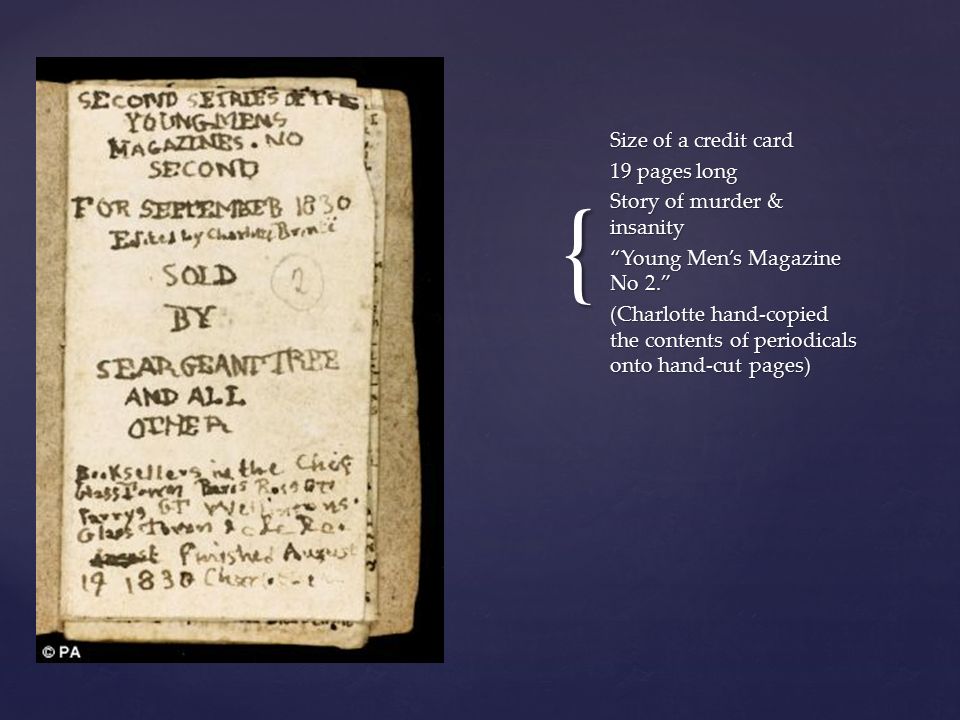 SECOND SERIES OF THE
YOUNG MENS
MAGAZINES. NO
SECOND
FOR SEPTEMBER 1830
Edited by Charlotte Brontë
SOLD
2
BY
SEARGEANT TREE
AND ALL
OTHER
Booksellers in the Chief
Glass Town Paris Ross GT
Parrys GT Wellingtons.
Glass Town &c
August Finished August
19 1830
© PA
{
Size of a credit card
19 pages long
Story of murder &
insanity
“Young Men’s Magazine
No 2.”
(Charlotte hand-copied
the contents of periodicals
onto hand-cut pages)